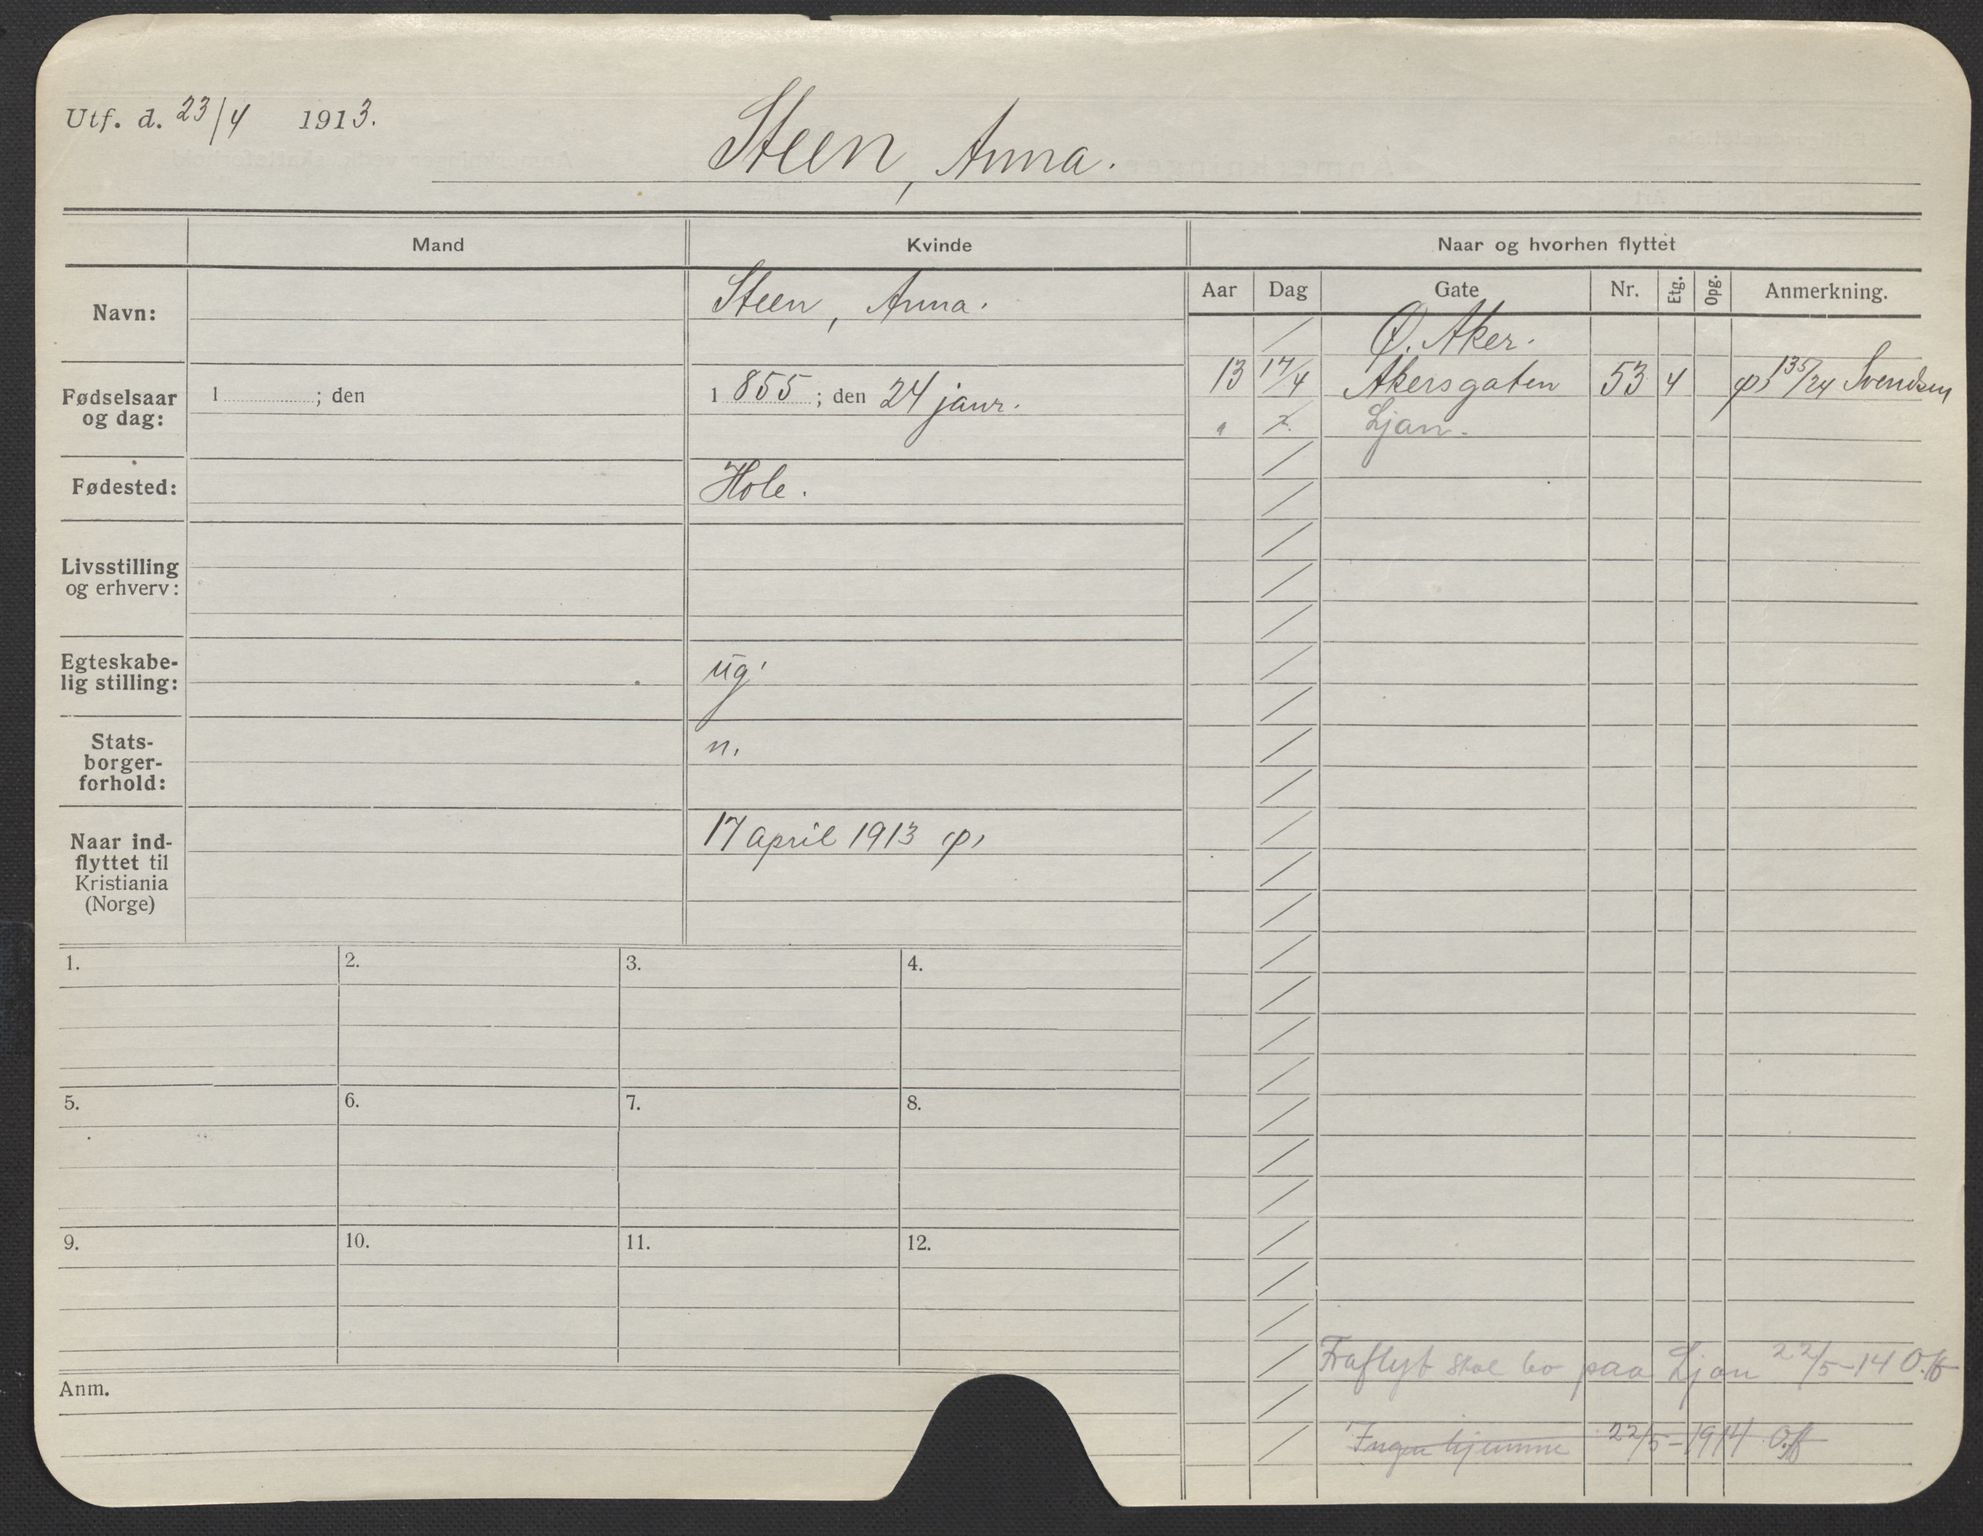 Utf. d. 23/4 1913.
Steen, Anna.
Mand
Kvinde
Naar og hvorhen flyttet
Navn:
Steen, Anna.
Aar Dag Gate Nr. Etg. Opg. Anmerkning.
Ø. Aker.
13 17/4 Akersgaten 53 4 Svendsen
Ljan.
Fødselsaar
og dag:
1 ; den
1 855 ; den 24 janr.
Fødested:
Hole.
Livsstilling
og erhverv:
Egteskabe-
lig stilling:
ug.
Stats-
borger-
forhold:
n.
Naar ind-
flyttet til
Kristiania
(Norge)
17 april 1913
1. 2. 3. 4.
5. 6. 7. 8.
9. 10. 11. 12.
Fraflyt skal bo paa Ljan 22/5-14
Ingen hjemme 22/5-1914
Anm.